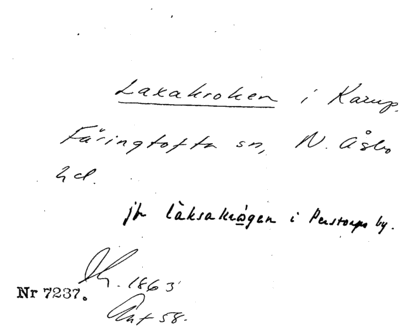 Laxakroken i Karup,
Färingtofta sn, N. Åsbo
hd.
jfr läksakrågen i Perstorps by.
1863
Nr 7237.
Ant 58.